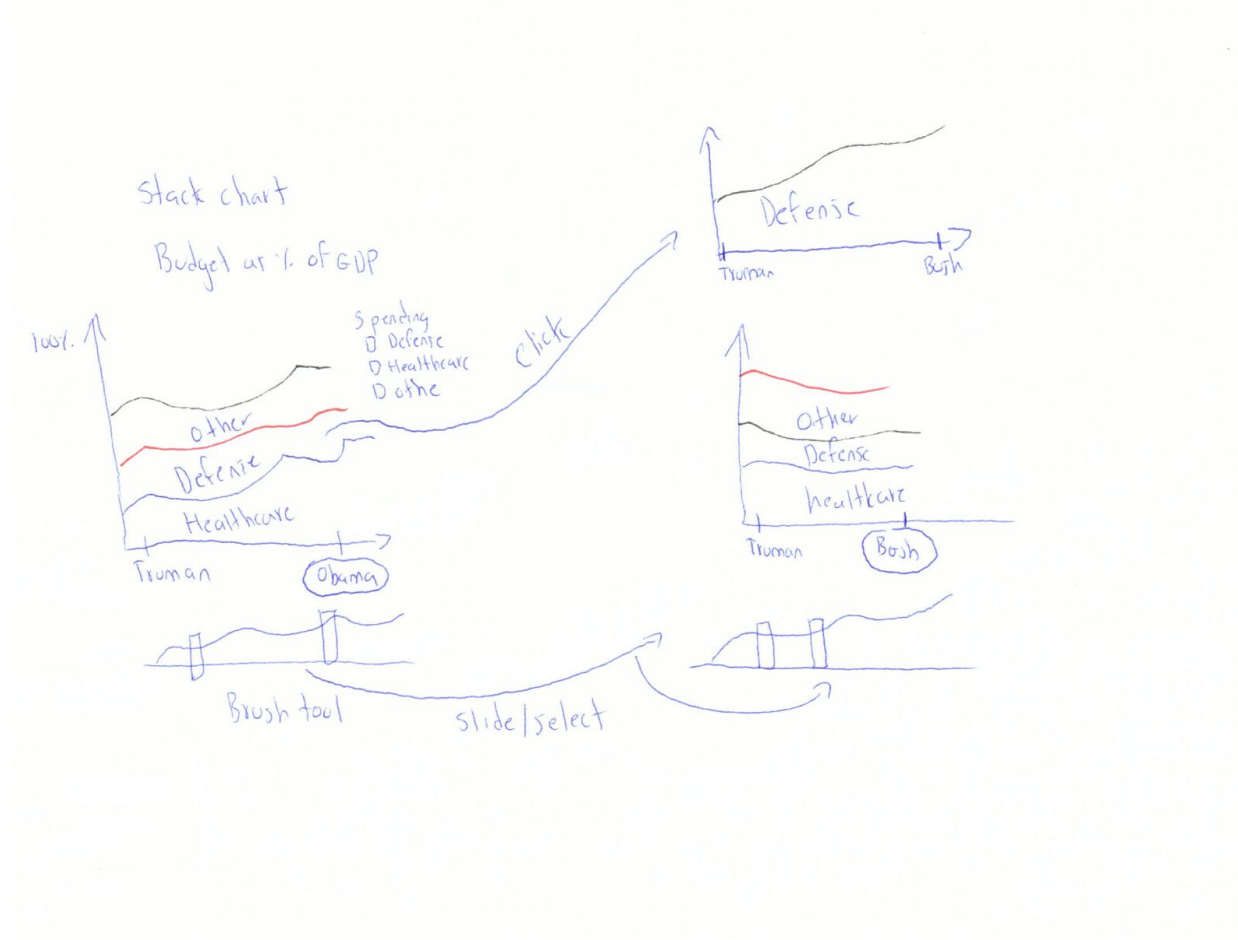 Stack chart
Budget as % of GDP
100%
Spending
Defense
Healthcare
othe
other
Defense
Healthcare
Truman
Obama
Brush tool
Click
slide/select
Defense
Truman
Bush
Other
Defense
healthcare
Truman
Bush